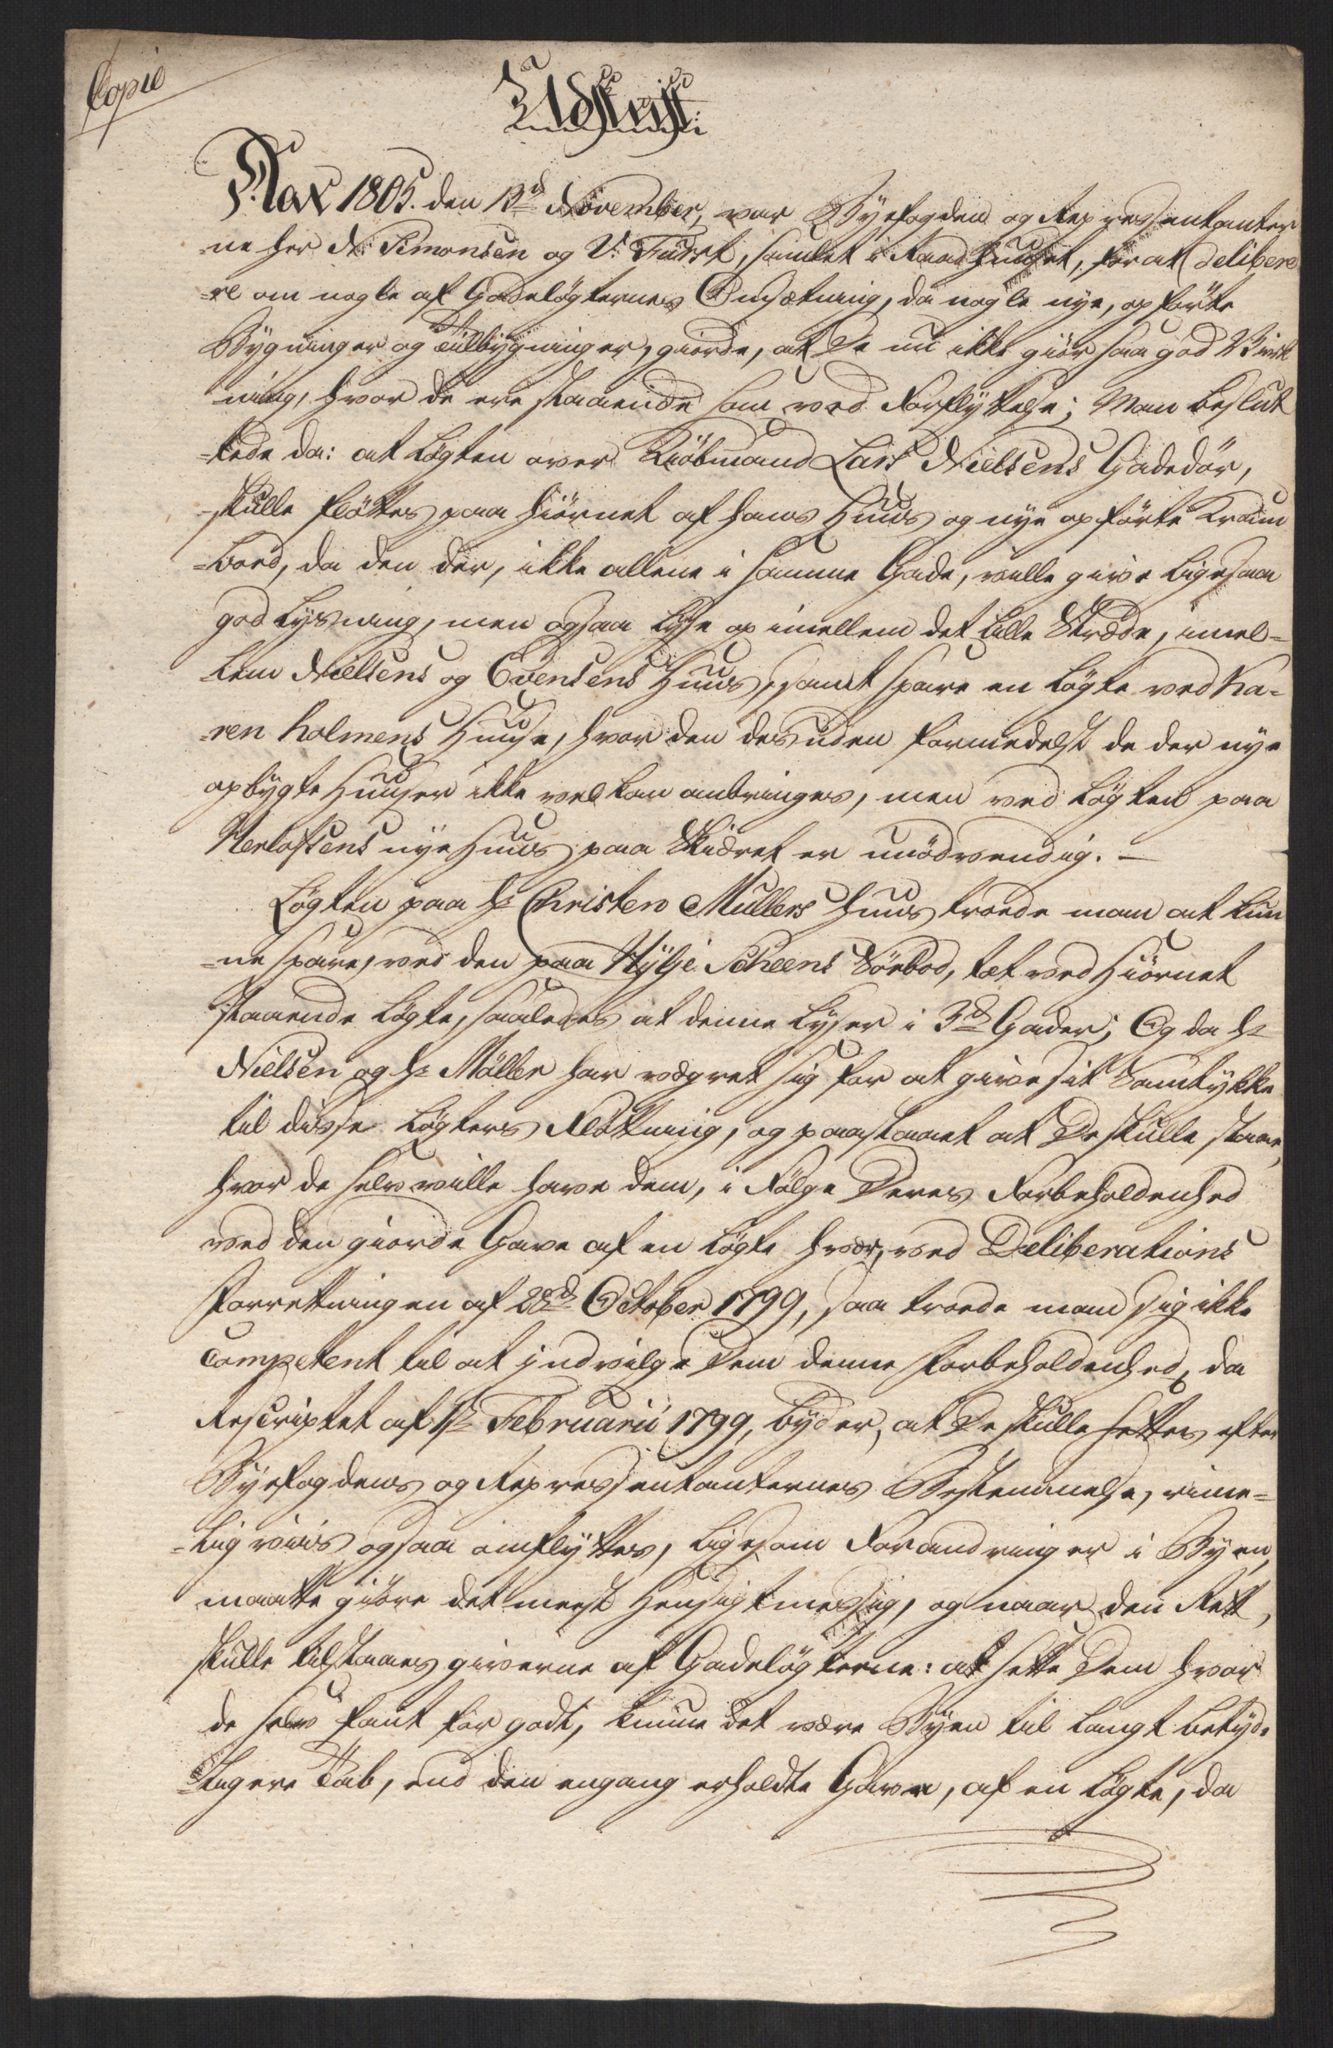 Copie
Udskrift.
Aar 1805. den 12te November, var Byefogden og Repræsentanter
ne her N: Simonsen og V: Fürst, samlet i Raadhuuset, for at delibere
-re om nogle af Gadeløgternes Omsætning, da nogle nye, opførte
Bygninger og Tilbygninger, giorde, at De nu ikke giør saa god Virk
ning, hvor de ere staaende som ved Forflyttelse; Man beslut
-tede da: at Løgten over Kiøbmand Lars Nielsens Gadedør,
-skulle fløttes paa Hiørnet af hans Huus og nye opførte Kram
-boed, da den der, ikke allene i samme Gade, ville give ligesaa
god Lysning, men ogsaa lyse op imellem det lille Stræde, imel-
-lem Nielsens og Evensens Huus, samt spare en Løgte ved Ka-
-ren Holmens Huuse, hvor den desuden formedelst de der nye
opbygte Huuser ikke vel kan anbringes, men ved Løgten paa
Herlofsens nye Huus paa Skiæret er unødvendig. —
Løgten paa Hr Christen Mullers Huus troede man at kun
-ne spare, ved den paa Hylje Scheens Søebod, tæt ved Hiørnet
staaende Løgte, saaledes at denne lyser i 3de Gader; Og da Hr
Nielsen og Hr Møller har vægret sig for at give sit Samtykke
til disse Løgters Fløttning, og paastaaet at De skulle staae,
hvor de selv ville have dem, i Følge Deres Forbeholdenhed
ved den giorde Gave af en Løgte hver, ved Deliberations
Forretningen af 28de October 1799, saa troede man sig ikke
competent til at indvilge Dem denne Forbeholdenhed, da
Rescriptet af 1ste Februarii 1799, byder, at De skulle settes efter
Byefogdens og Repræsentanternes Bestemmelse, rime-
-ligviis ogsaa omflyttes, ligesom Forandringer i Byen,
maatte giøre det meest Hensigtmessig, og naar den Rett,
skulle tilstaaes giverne af Gadeløgterne: at sette Dem hvor
de selv fant for godt, kunne det være Byen til langt betyde
-ligere Tab, end den engang erholdte Gave, af en Løgte, da